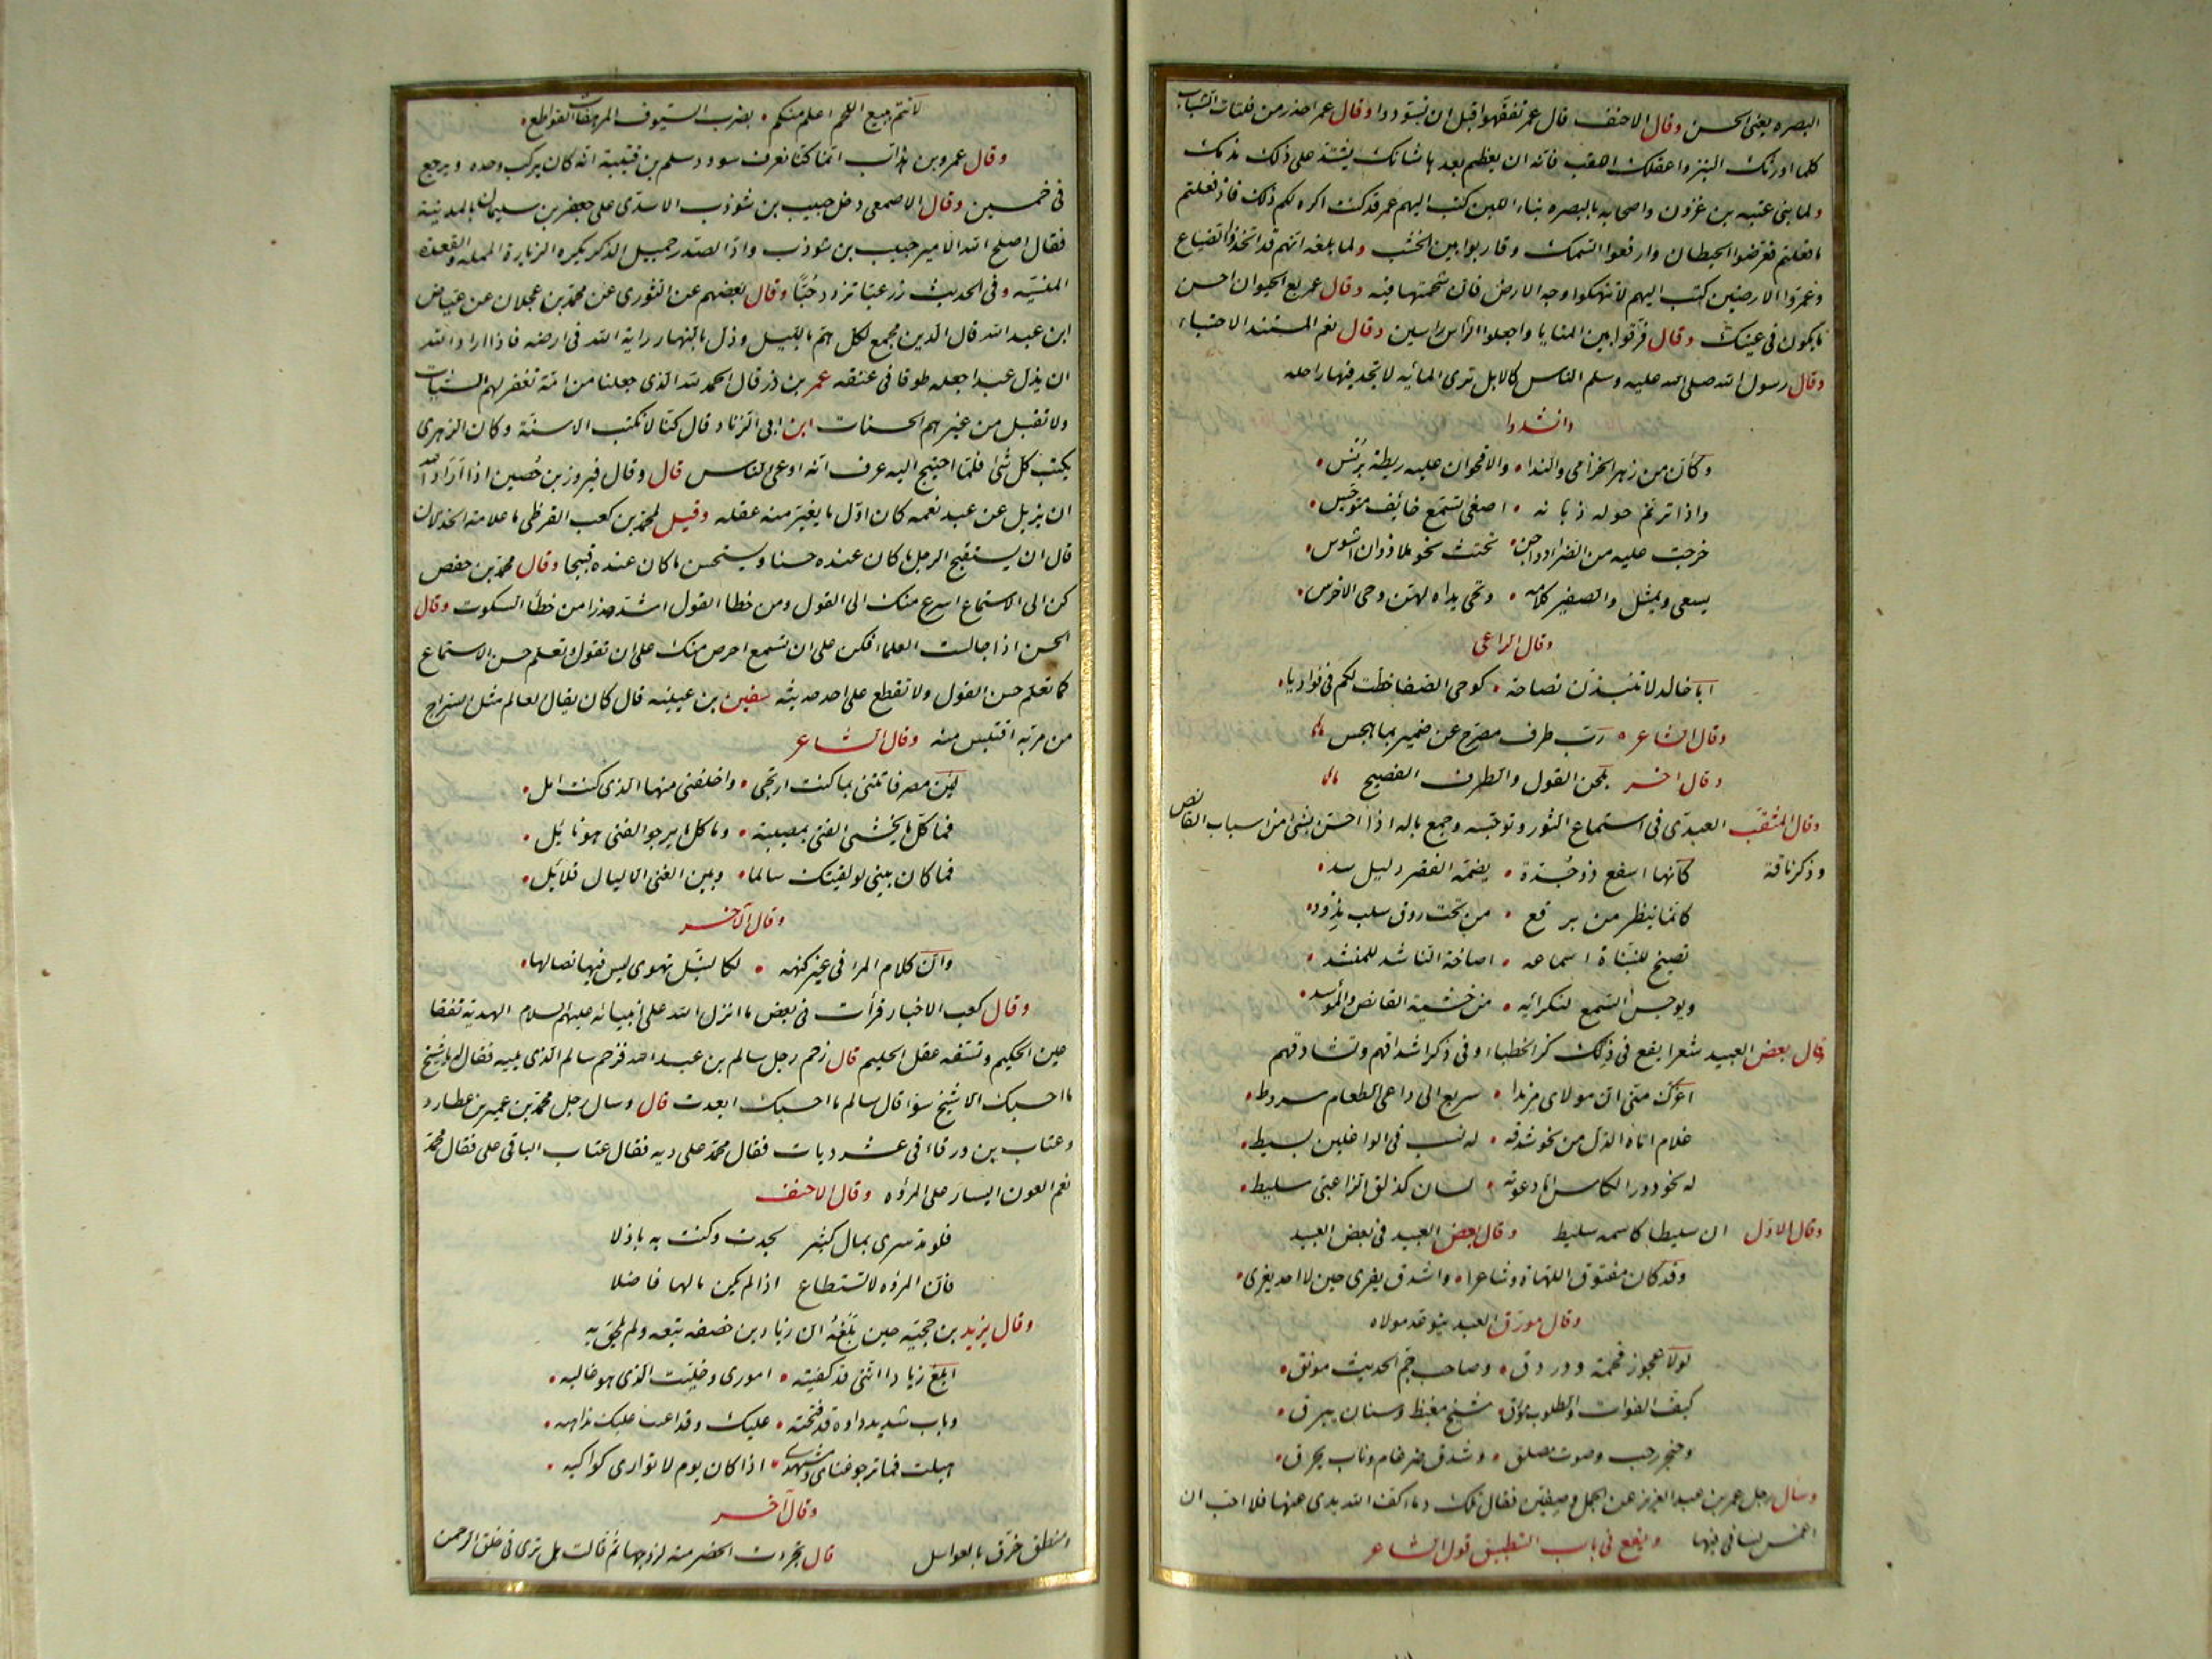 البصره يعنى الحسن وقال الاحنف قال عمر تفقهوا قبل ان تسودوا وقال عمر احذر من فلتات الشباب
كلما اورثك النبز واعقلك اللقب فانه ان يعظم بعدها شانك يشتد على ذلك ندمك
ولما بنى عتبه بن غزوان واصحابه بالبصره بناء اللبن كتب اليهم عمر قد كنت اكره لكم ذلك فاذ فعلتم
ما فعلتم فعرضوا الحيطان وارفعوا السمك وقاربوا بين الخشب ولما بلغه انهم قد اتخذوا الضياع
وعمروا الارضين كتب اليهم لا تنهكوا وجه الارض فان شحمتها فيه وقال عمر بع الحيوان احسن
ما يكون فى عينك وقال فرقوا بين المنايا واجعلوا الراس راسين وقال نعم المستند الاحتباء
وقال رسول الله صلى الله عليه وسلم الناس كالابل ترى المائيه لا تجد فيها راحله
وانشدوا
وكأن من زهر الخزامى والندا • والاقحوان عليه ريطة برنس •
واذا ترنم حوله ذبانه • اصغى لتسمع خائف متوجس •
خرجت عليه من الضراء دواجن • تحتث نحو ملا وذوان اشوس •
يسعى ويمثل والصفير كلامه • وتحى يداه لهتن وحى الاخرس •
وقال الراعى
ابا خالد لا تنبذن نصاحة • كوحى الصفا خطت لكم فى فواديا •
وقال الشاعر • رب طرف مصرح عن ضمير بما هجس
وقال اخر بلحن القول والطرف الفصيح
وقال المثقب العبدى فى استماع الثور وتوجسه وجمع باله اذا احس بشئ من اسباب القانص
وذكر ناقة كانها اسفع ذو جدة • يضمه القفر وليل سد •
كانما ينظر من برقع • من تحت روق سلب يذود •
تصيخ للنبأة اسماعه • اصاخة الناشد للمنشد •
ويوجس السمع لنكرائه • من خشية القانص والموسد •
قال بعض العبيد شعرا يقع فى ذلك ذكر الخطباء وفى ذكر اشداقهم وتشادقهم
اغرك منى ان مولاى مزندا • سريع الى داعى الطعام سروط •
غلام اتاه الذل من نحو شدقه • له نسب فى الواغلين بسيط •
له نحو دور الكاس اما دعوته • لسان كذلق الزاعبى سليط •
وقال الاول ان سليطا كاسمه سليط وقال بعض العبيد فى بعض العبيد
وقد كان مفتوق اللهاة وشاعرا • واشدق يفرى حين لا احد يفرى •
وقال مورق العبد يتوعد مولاه
لولا عجوز قحمة ودردق • وصاحب جم الحديث مونق •
كيف الفوات والطلوب مورق • شيخ مغيظ وسنان يبرق •
وحنجر رحب وصوت مصلق • وشدق ضرغام وناب يحرق •
وسال رجل عمر بن عبد العزيز عن الجمل وصفين فقال تلك دماء كف الله يدى عنها فلا احب ان
اغمس لسانى فيها ويقع فى باب التطبيق قول الشاعر
لانتم ببيع اللحم اعلم منكم • بضرب السيوف المرهفات القواطع •
وقال عمرو بن هذاب انما كنا نعرف سودد سلم بن قتيبة انه كان يركب وحده ويرجع
فى خمسين وقال الاصمعى دخل حبيب بن شوذب الاسدى على جعفر بن سليمان بالمدينة
فقال اصلح الله الامير حبيب بن شوذب واد الصدر جميل الذكر يكره الزيارة المملة والقعدة
المنسية وفى الحديث زر غبا تزدد حبا وقال بعضهم عن الثورى عن محمد بن عجلان عن عياض
ابن عبد الله قال الدين مجمع لكل هم بالليل وذل بالنهار راية الله فى ارضه فاذا اراد الله
ان يذل عبدا جعله طوقا فى عنقه عمر بن ذر قال الحمد لله الذى جعلنا من امة تغفر لهم السيات
ولا تقبل من غيرهم الحسنات ابن ابى الزناد قال كنا لا نكتب الا سنة وكان الزهرى
يكتب كل شئ فلما احتيج اليه عرف انه اوعى الناس قال وقال فيروز بن حصين اذا اراد الله
ان يزيل عن عبد نعمه كان اول ما يغير منه عقله وقيل لمحمد بن كعب القرظى ما علامة الخذلان
قال ان يستقبح الرجل ما كان عنده حسنا ويستحسن ما كان عنده قبيحا وقال محمد بن حفص
كن الى الاستماع اسرع منك الى القول ومن خطا القول اشد حذرا من خطا السكوت وقال
الحسن اذا جالست العلماء فكن على ان تسمع احرص منك على ان تقول وتعلم حسن الاستماع
كما تعلم حسن القول ولا تقطع على احد حديثه سفين بن عيينه قال كان يقال العالم مثل السراج
من مر به اقتبس منه وقال الشاعر
لئن مصر فاتتنى بما كنت ارتجى • واخلفنى منها الذى كنت امل •
فما كل ما يخشى الفتى بمصيبة • وما كل ما يرجو الفتى هو نايل •
فما كان بينى لو لقيتك سالما • وبين الغنى الا ليال قلائل •
وقال الآخر
وان كلام المرء فى غير كنهه • لكا لنبل تهوى ليس فيها نصالها •
وقال كعب الاحبار قرأت فى بعض ما انزل الله على انبيائه عليهم السلام الهدية تفقا
عين الحكيم وتسفه عقل الحليم قال زحم رجل سالم بن عبد الله فزحم سالم الذى يليه فقال له يا شيخ
ما احسبك الا شيخ سوء قال سالم ما احسبك ابعدت قال وسال رجل محمد بن عمير بن عطارد
وعتاب بن ورقاء فى عشر ديات فقال محمد على ديه فقال عتاب الباقى على فقال محمد
نعم العون اليسار على المروه وقال الاحنف
فلو مد سرى بمال كثير لجدت وكنت به باذلا
فان المروه لا تستطاع اذا لم يكن مالها فاضلا
وقال يزيد بن حجيه حين بلغه ان زياد بن خصفه تبعه ولم يلحق به
ابلغ زيادا اننى قد كفيته • امورى وخليت الذى هو غالبه •
وباب شديد داوه قد فتحته • عليك وقد اعيت عليك مذاهبه •
هبلت فما ترجو غناى ومشهدى • اذا كان يوم لا توارى كواكبه •
وقال آخر
المنطق خرق بالعواسل قال بخرت الحضرمية لزوجها ثم قالت هل ترى فى خلق الرحمن